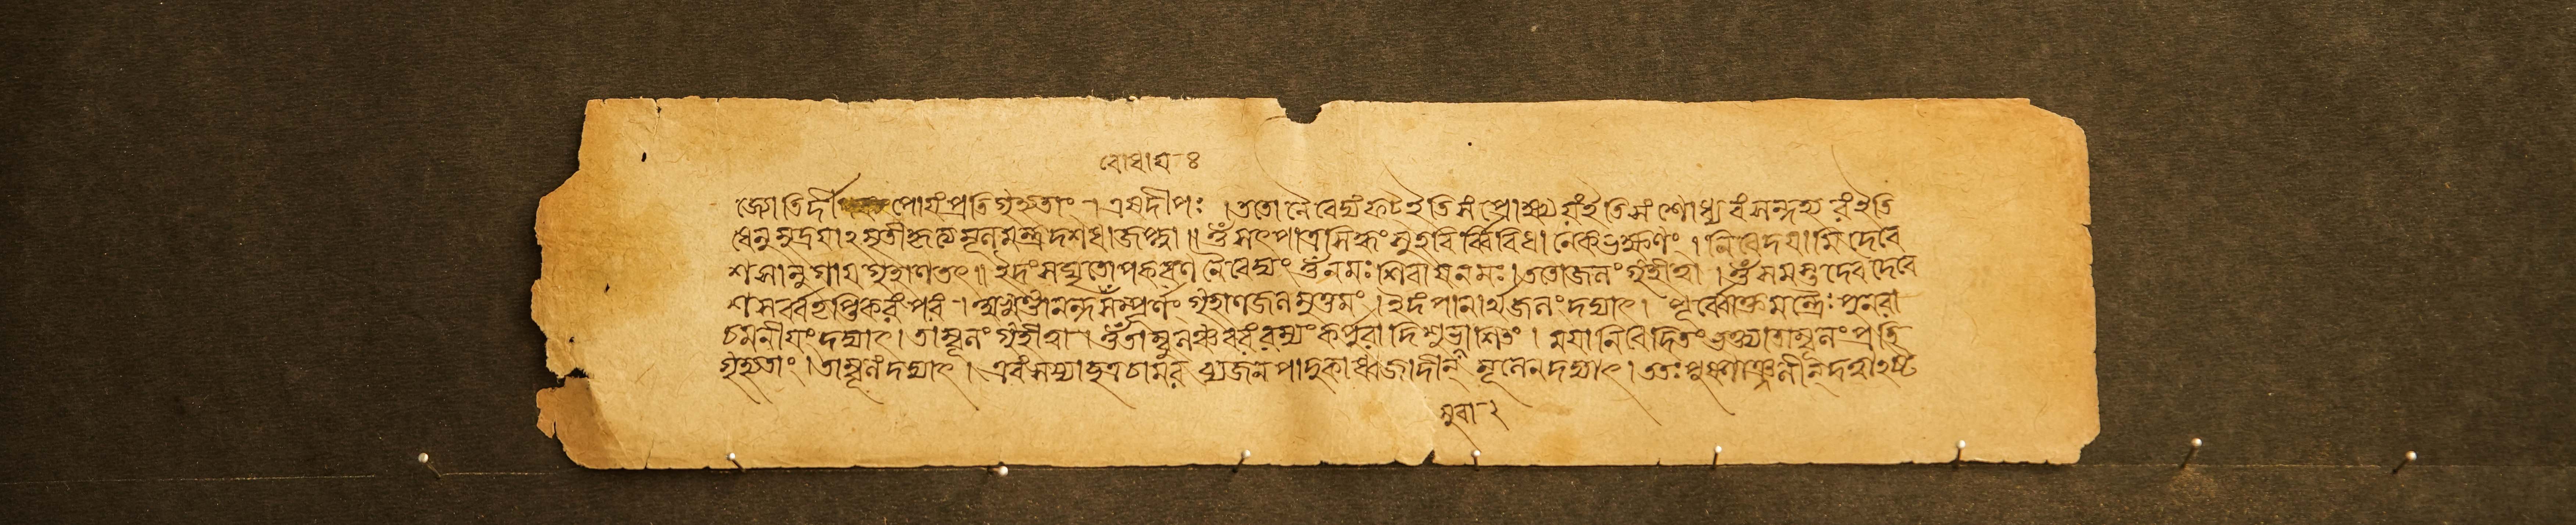 বোধায ৪
জ্যোতির্দী পোযং প্রতিগৃহ্যতাং । এষদীপঃ । ততো নৈবেদ্যং ফট ইতি সংপ্রোক্ষ্য যং ইতি সংশোধ্য বং সন্দহ্য রং ইতি
ধেনুমুদ্রযাঽমৃতীকৃত্য মূলমন্ত্রং দশধা জপ্ত্বা ॥ ওঁ সৎপাত্রসিদ্ধং সুহবির্ব্বিবিধানেকভক্ষণং । নিবেদযামি দেবে
শ সানুগায গৃহাণ তৎ ॥ ইদং সঘৃতোপকরণনৈবেদ্যং ওঁ নমঃ শিবায নমঃ । ততো জলং গৃহীত্বা । ওঁ সমস্তদেবদেবে
শ সর্ব্বতৃপ্তিকরং পরং । অখণ্ডানন্দসম্পূর্ণং গৃহাণ জলমুত্তমং । ইদং পানার্থজলং দদ্যাৎ । পূর্ব্বোক্তমন্ত্রৈঃ পুনরা
চমনীযং দদ্যাৎ । তাম্বূলং গৃহীত্বা । ওঁ তাম্বুলঞ্চ বরং রম্যং কর্পুরাদি শুভ্রাশিতং । মযা নিবেদিতং ভক্ত্যা তাম্বূলং প্রতি
গৃহ্যতাং । তাম্বূলং দদ্যাৎ । এবং শয্যাছত্রচামর ব্যজনপাদুকাধ্বজাদীন্ মূলেন দদ্যাৎ । ততঃ পুষ্পাঞ্জলীন্ দত্বাঽষ্ট
মুবা ২